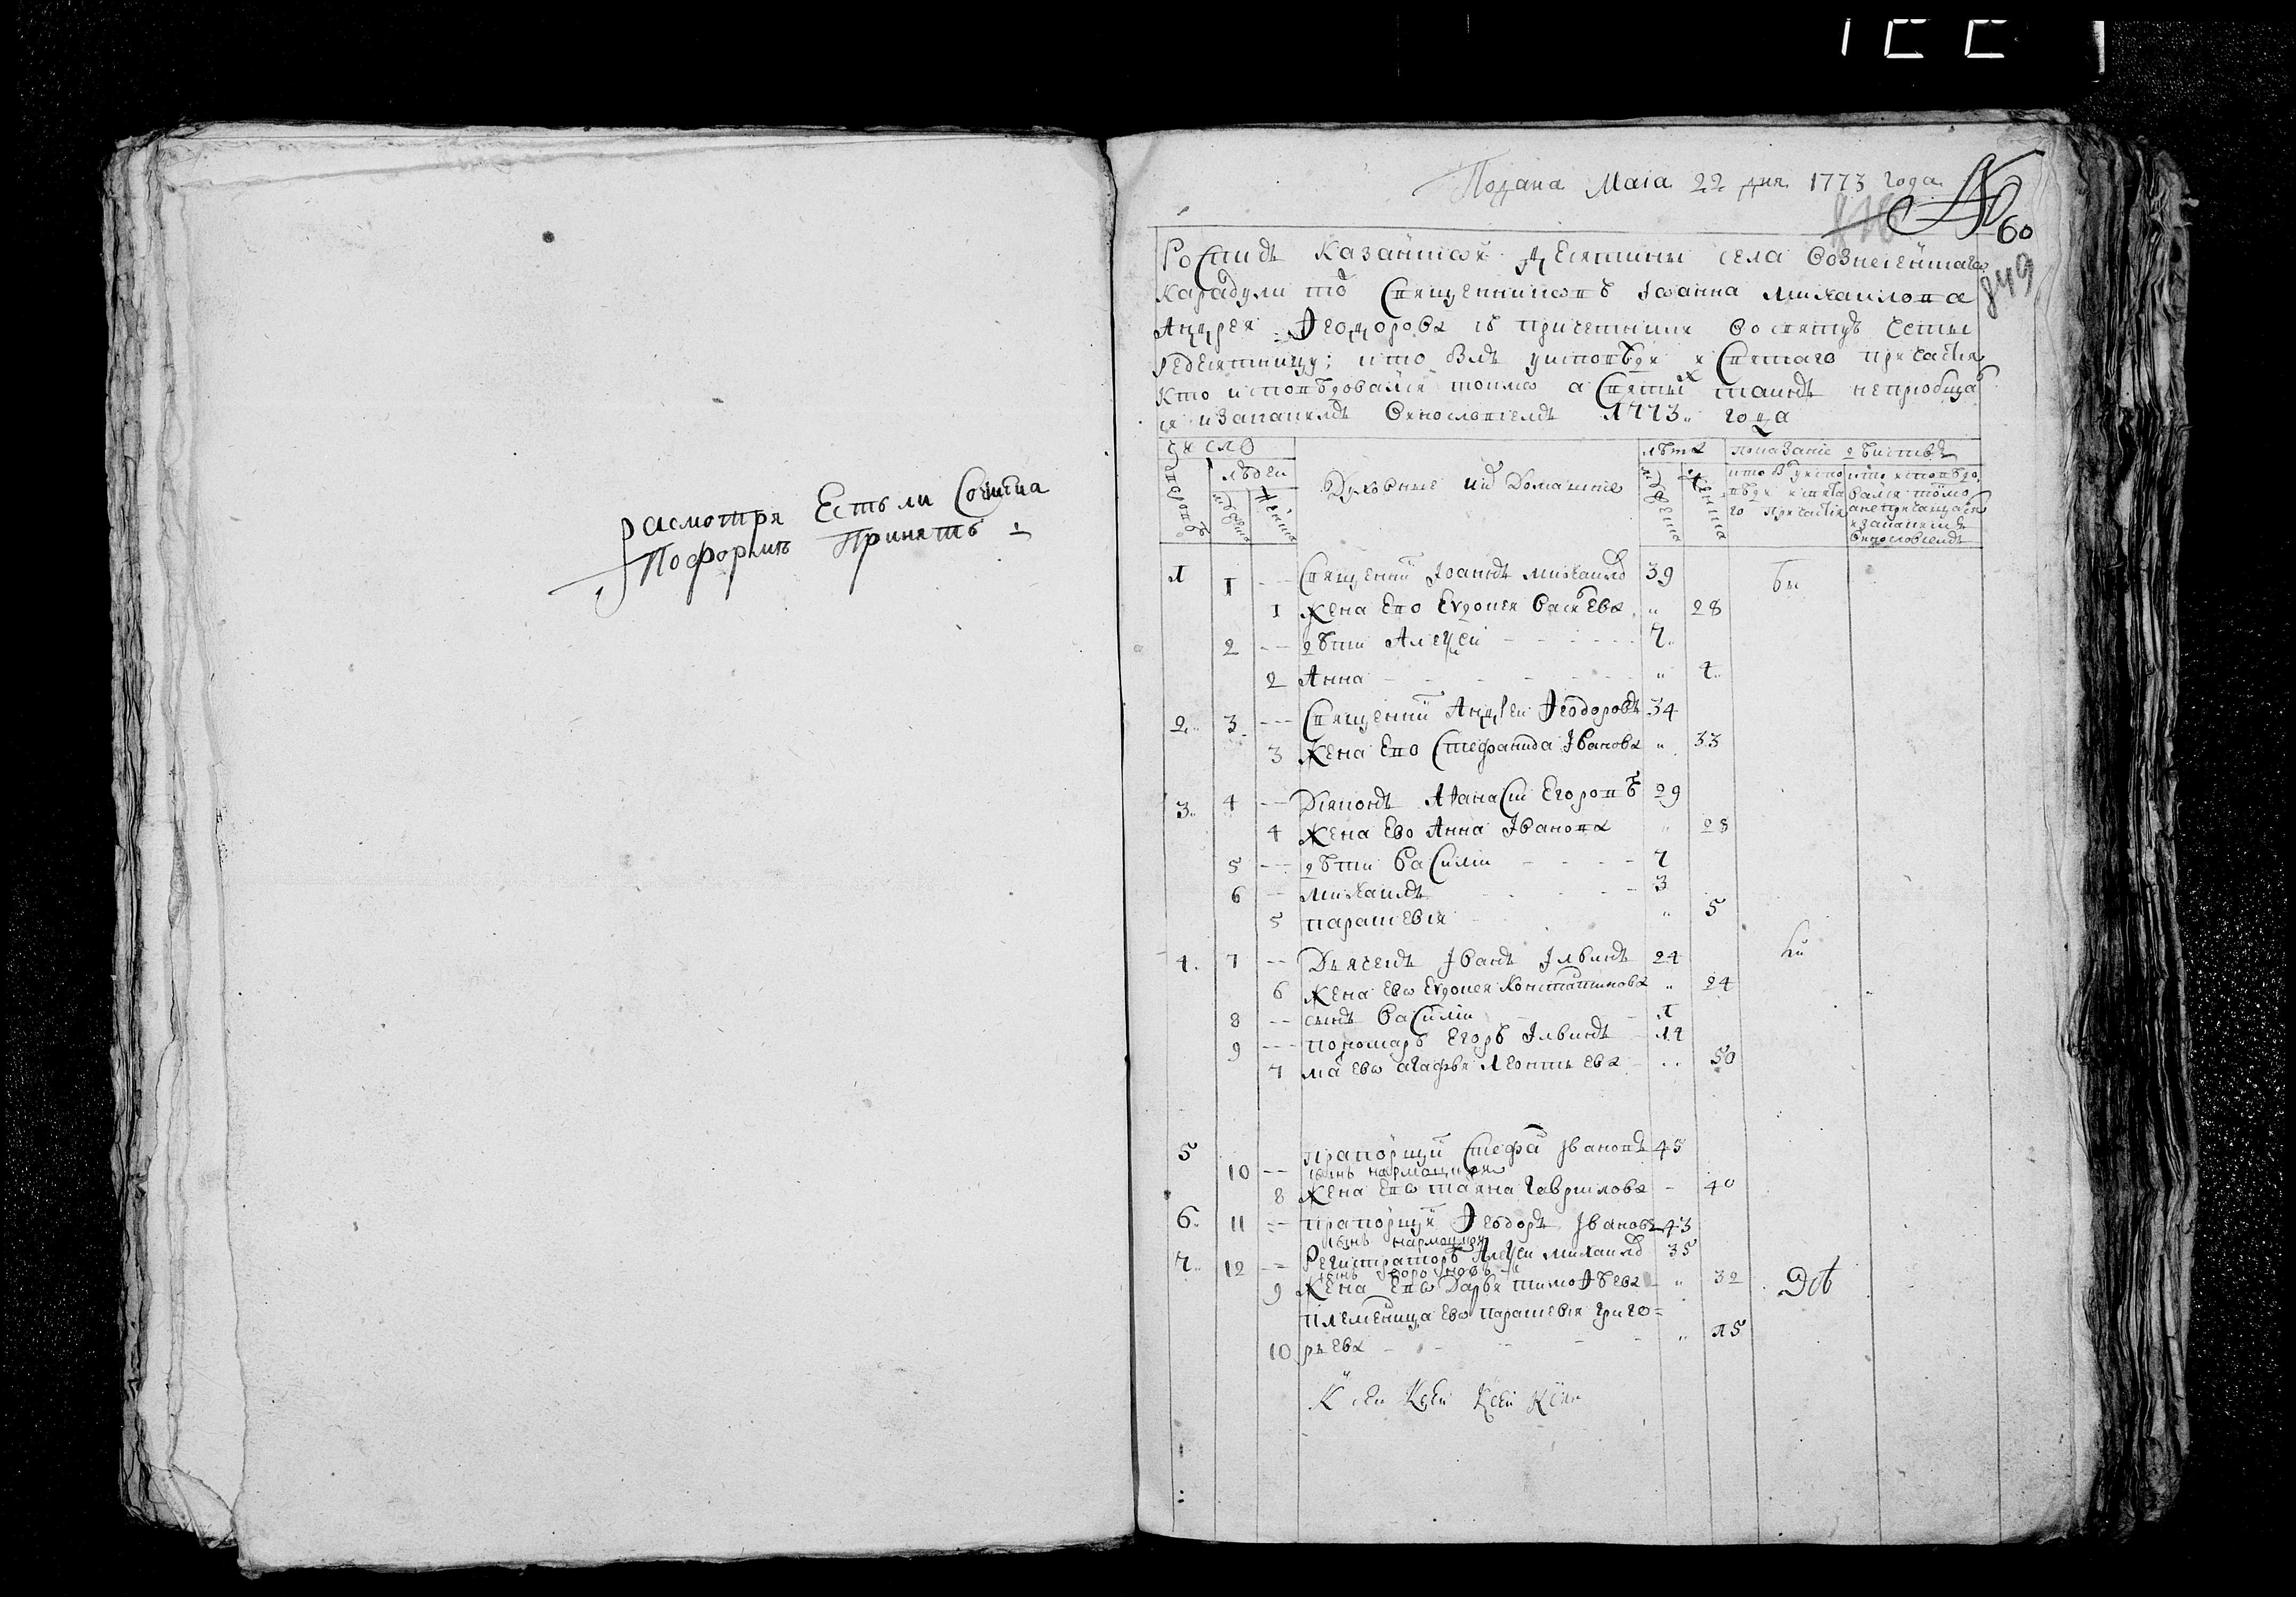 расмотря Естьли Сочинена
По форме Принять
Подана Маіа 22 дня 1773 года
60
849
Роспись Казанской Десятины села Вознесенскаго
Карадули тоъ Священниковъ Іоанна Михаилова
Андрея Ѳеодорова съ причетники во святую четы
редесятницу; кто былъ у исповѣди и святаго причастия
Кто исповѣдовался токмо а святыхъ таинъ не приобщал
ся и за какимъ винословиемъ 1773 года
число
людей
лѣта
показание действъ
дворовъ
мужеска
женска
Духовные ихъ Домашние
мужеска
женска
кто былъ у испо
вѣди и свята
го причастия
кто исповѣдо
вался токмо
а не причащался
и за какимъ
винословиемъ
1 1 -- Священникъ Іоаннъ Михаиловъ 39 бы
1 Жена Ево Евдокея Васильева " 28
2 -- дѣти Алеѯеи 7
2 Анна " 4
2 3 -- Священникъ Андреи Ѳеодоровъ 34
3 Жена Ево Стефанида Іванова " 33
3 4 -- Диаконъ Аѳанасии Егоровъ 29
4 Жена Ево Анна Іванова " 28
5 -- дѣти Василии 7
6 -- Михаилъ 3
5 Параскевия " 5
4 7 -- Дьячекъ Іванъ Ильинъ 24 ли
6 Жена Ево Евдокея Константинова " 24
8 -- сынъ Василии 1
9 -- пономарь Егоръ Ильинъ 14
7 мать ево Агафья Леонтьева " 50
5 10 -- прапорщикъ Стефанъ Івановъ 45
сынъ нармоцкия
8 Жена Ево Татияна Гаврилова - 40
6 11 -- прапорщикъ Ѳеодоръ Івановъ 43
сынъ нармоцкия
7 12 -- Регистраторъ Алеѯеи Михаиловъ 35
сынъ
9 Жена Ево Дарья Тимоѳѣева " 32
племеница ево Параскевия Григо=
10 рьева " 15